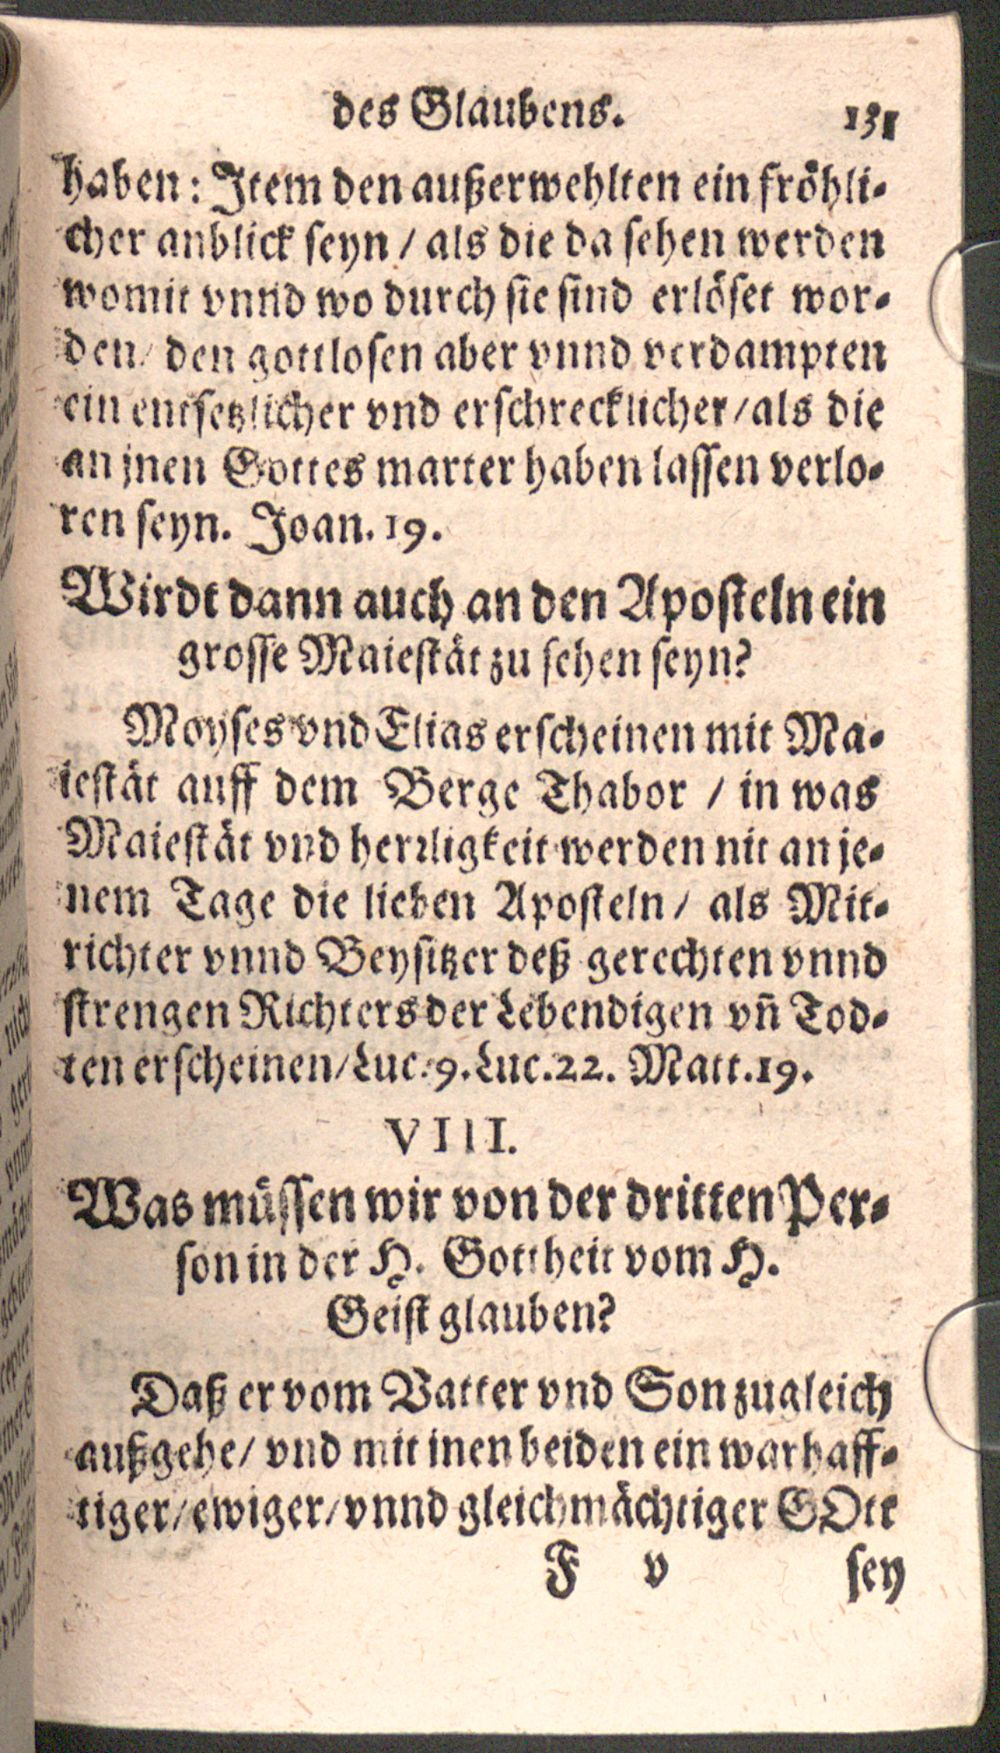 des Glaubens. 131
haben: Item den außerwehlten ein fröhli-
cher anblick seyn / als die da sehen werden
womit vnnd wo durch sie sind erlöset wor-
den / den gottlosen aber vnnd verdampten
ein entsetzlicher vnd erschrecklicher / als die
an jnen Gottes marter haben lassen verlo-
ren seyn. Joan. 19.
Wirdt dann auch an den Aposteln ein
grosse Maiestät zu sehen seyn?
Moyses vnd Elias erscheinen mit Ma-
iestät auff dem Berge Thabor / in was
Maiestät vnd herrligkeit werden nit an je-
nem Tage die lieben Aposteln / als Mit-
richter vnnd Beysitzer deß gerechten vnnd
strengen Richters der Lebendigen vn̄ Tod-
ten erscheinen / Luc. 9. Luc. 22. Matt. 19.
VIII.
Was müssen wir von der dritten Per-
son in der H. Gottheit vom H.
Geist glauben?
Daß er vom Vatter vnd Son zugleich
außgehe / vnd mit inen beiden ein warhaff-
tiger / ewiger / vnnd gleichmächtiger GOtt
F v sey